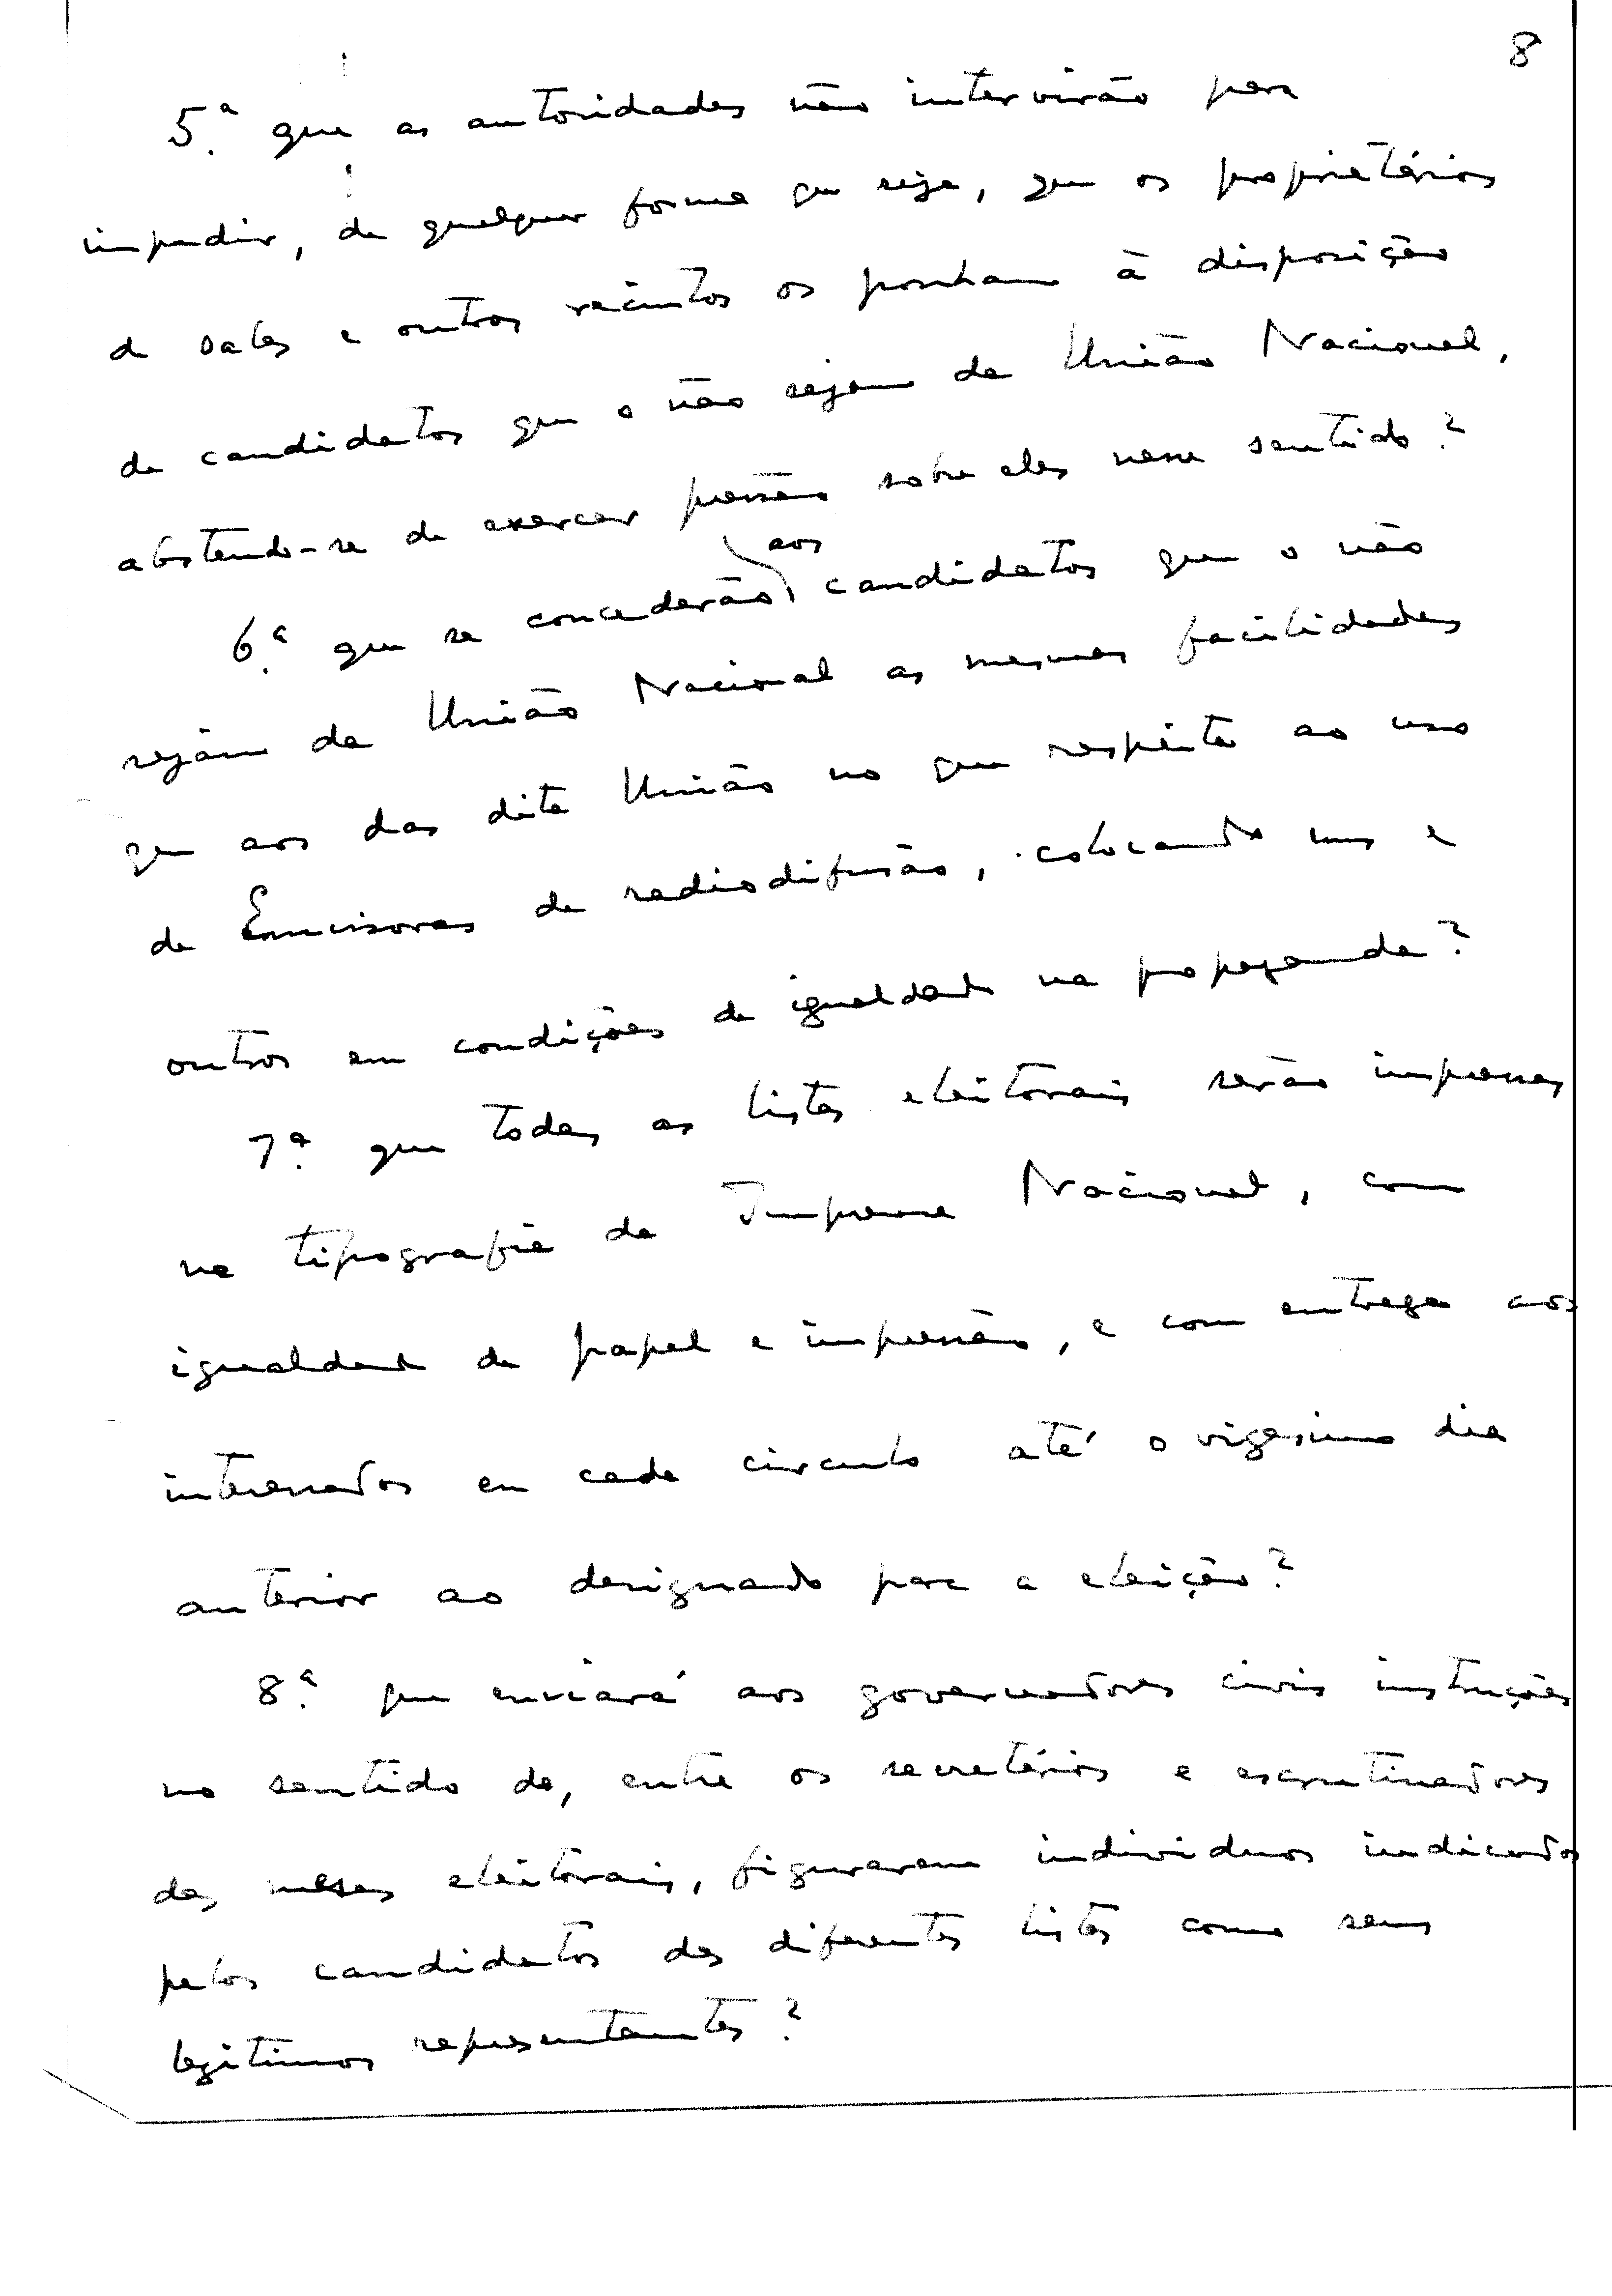 8
5.ª que as autoridades não intervirão para
impedir, de qualquer forma que seja, que os proprietários
de salas e outros recintos os ponham à disposição
de candidatos que o não sejam da União Nacional,
abstendo-se de exercer pressão sobre eles nesse sentido?
6.ª que se concederão aos candidatos que o não
sejam da União Nacional as mesmas facilidades
que aos das dita União no que respeita ao uso
de Emissoras de radiodifusão, colocando uns e
outros em condições de igualdade na propaganda?
7.ª que todas as listas eleitorais serão impressas
na tipografia da Imprensa Nacional, com
igualdade de papel e impressão, e com entrega aos
interessados em cada círculo até o vigésimo dia
anterior ao designado para a eleição?
8.ª que enviará aos governadores civis instruções
no sentido de, entre os secretários e escrutinadores
das mesas eleitorais, figurarem indivíduos indicados
pelos candidatos das diferentes listas como seus
legítimos representantes?